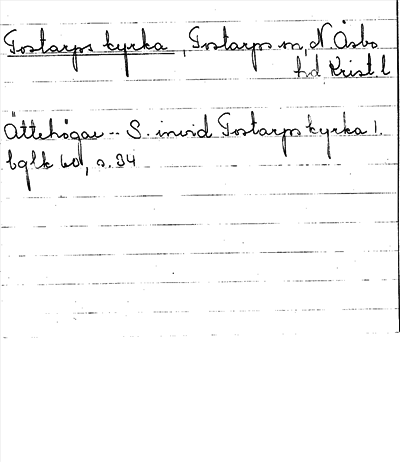 Tostarps kyrka, Tostarps sn, N Åsbo
hd Krist l
Ättehögar -- S. invid Tostarps kyrka 1.
bglk 60, s. 34